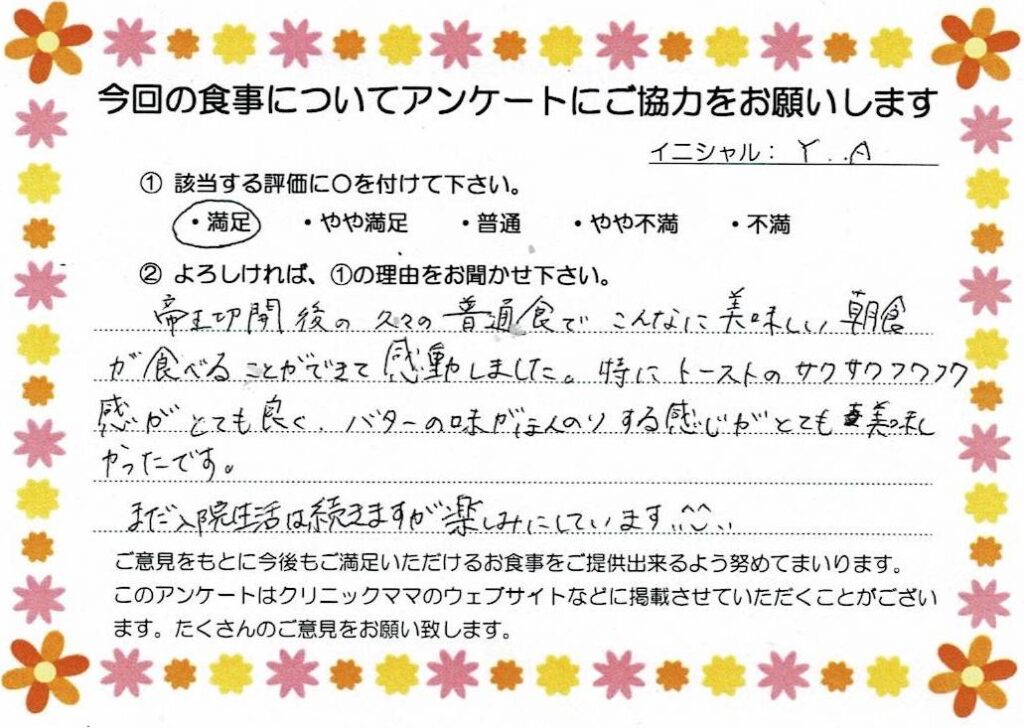 今回の食事についてアンケートにご協力をお願いします
イニシャル： Y . A
① 該当する評価に○を付けて下さい。
・満足 ・やや満足 ・普通 ・やや不満 ・不満
② よろしければ、①の理由をお聞かせ下さい。
帝王切開後の久々の普通食でこんなに美味しい朝食
が食べることができて感動しました。特にトーストのサクサクフワフワ
感がとても良く、バターの味がほんのりする感じがとても美味し
かったです。
まだ入院生活は続きますが楽しみにしています..^^..
ご意見をもとに今後もご満足いただけるお食事をご提供出来るよう努めてまいります。
このアンケートはクリニックママのウェブサイトなどに掲載させていただくことがござい
ます。たくさんのご意見をお願い致します。